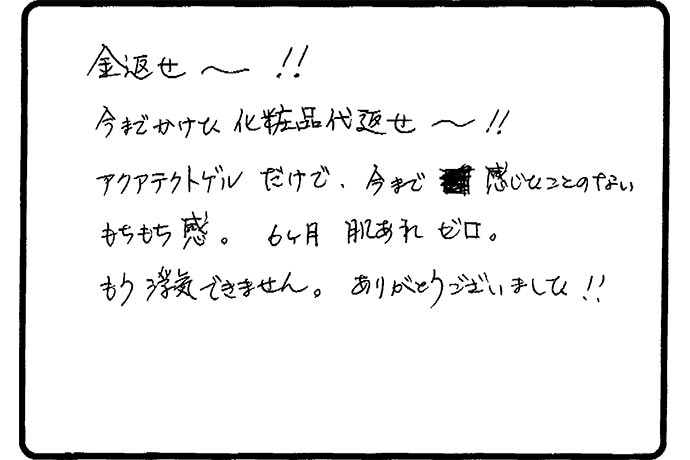 金返せ〜!!
今までかけた化粧品代返せ〜!!
アクアテクトゲルだけで、今まで感じたことのない
もちもち感。6ヶ月肌あれゼロ。
もう浮気できません。ありがとうございました!!